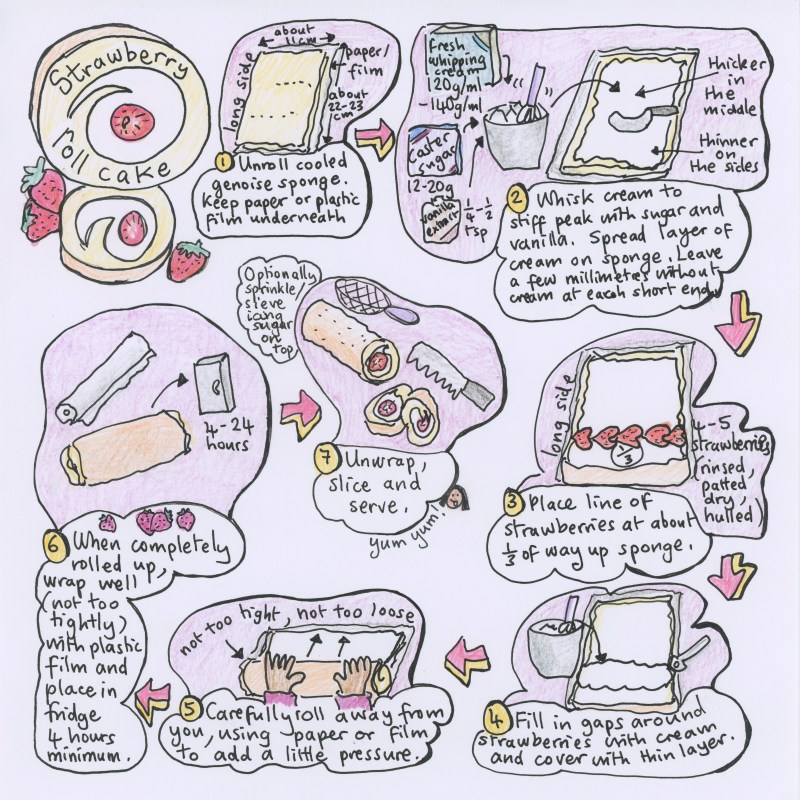 Strawberry
roll cake
about
11cm
long side
paper/
film
about
22-23
cm
1 Unroll cooled
genoise sponge.
keep paper or plastic
film underneath
Fresh
whipping
cream
120g/ml
-140g/ml
Caster
sugar
12-20g
vanilla
extract
1/4-1/2
tsp
thicker
in
the
middle
thinner
on
the sides
2 Whisk cream to
stiff peak with sugar and
vanilla. Spread layer of
cream on sponge. Leave
a few millimetres without
cream at each short end.
long side
1/3
4-5
strawberries
rinsed,
patted
dry,
hulled
3 Place line of
strawberries at about
1/3 of way up sponge.
4 Fill in gaps around
strawberries with cream
and cover with thin layer.
not too tight, not too loose
5 Carefully roll away from
you, using paper or film
to add a little pressure.
4-24
hours
6 When completely
rolled up,
wrap well
(not too
tightly)
with plastic
film and
place in
fridge
4 hours
minimum.
Optionally
sprinkle/
sieve
icing
sugar
on
top
7 Unwrap,
slice and
serve.
yum yum!